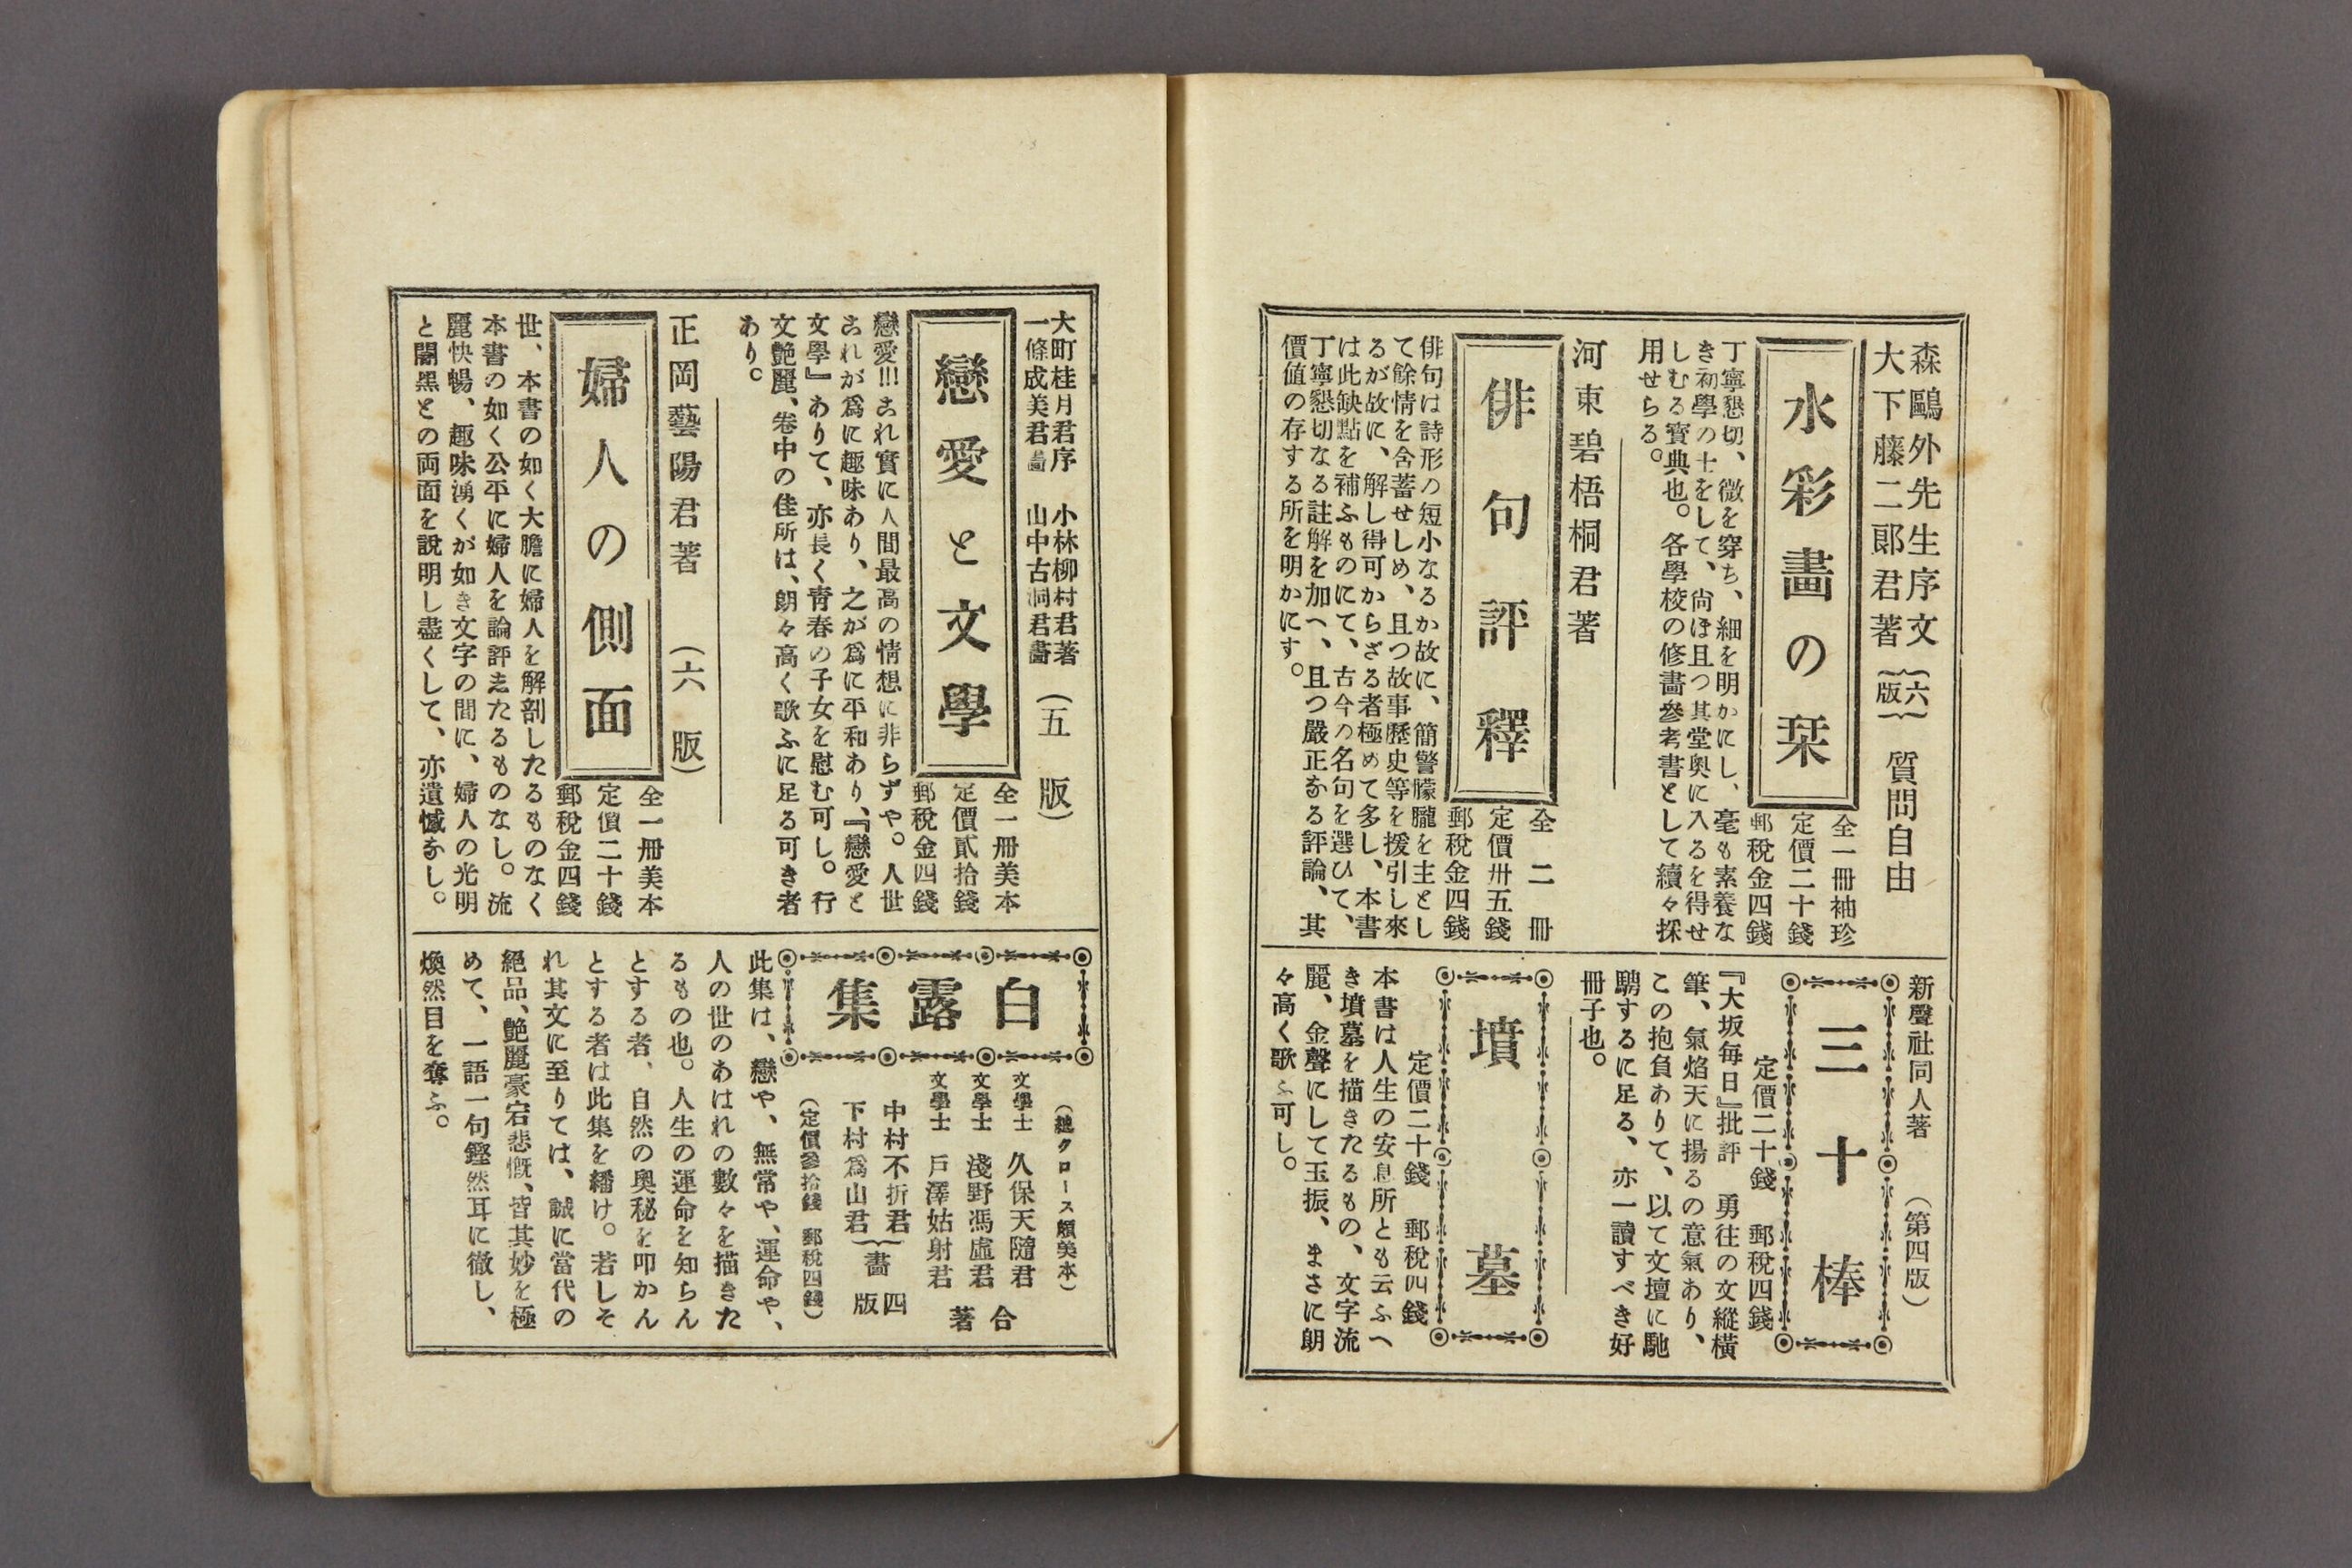 森鷗外先生序文
大下藤二郞君著
(六版)
質問自由
水彩畵の栞
全一冊袖珍
定價二十錢
郵稅金四錢
丁寧懇切、微を穿ち、細を明かにし、毫も素養な
き初學の士をして、尙ほ且つ其堂奥に入るを得せ
しむる寳典也。各學校の修畵參考書として續々採
用せらる。
河東碧梧桐君著
俳句評釋
全二冊
定價卅五錢
郵稅金四錢
俳句は詩形の短小なるか故に、簡警朦朧を主とし
て餘情を含蓄せしめ、且つ故事歷史等を援引し來
るが故に、解し得可からざる者極めて多し、本書
は此缺點を補ふものにて、古今の名句を選ひて、
丁寧懇切なる註解を加へ、且つ嚴正なる評論、其
價値の存する所を明かにす。
新聲社同人著 (第四版)
三十棒
定價二十錢 郵稅四錢
『大坂每日』批評 勇往の文縱橫
筆、氣焰天に揚るの意氣あり、
この抱負ありて、以て文壇に馳
騁するに足る、亦一讀すべき好
冊子也。
墳墓
定價二十錢 郵稅四錢
本書は人生の安息所とも云ふへ
き墳墓を描きたるもの、文字流
麗、金聲にして玉振、まさに朗
々高く歌ふ可し。
大町桂月君序 小林柳村君著
一條成美君畵 山中古洞君畵
(五版)
戀愛と文學
全一冊美本
定價貳拾錢
郵稅金四錢
戀愛!!!これ實に人間最高の情想に非らずや。人世
これが爲に趣味あり、之が爲に平和あり、『戀愛と
文學』ありて、亦長く靑春の子女を慰む可し。行
文艶麗、卷中の佳所は、朗々高く歌ふに足る可き者
あり。
正岡藝陽君著 (六版)
婦人の側面
全一冊美本
定價二十錢
郵稅金四錢
世、本書の如く大膽に婦人を解剖したるものなく
本書の如く公平に婦人を論評したるものなし。流
麗快暢、趣味湧くが如き文字の間に、婦人の光明
と闇黑との両面を說明し盡くして、亦遺憾なし。
白露集
(總クロース頗美本)
文學士 久保天隨君
文學士 淺野馮虛君
文學士 戸澤姑射君
合著
中村不折君
下村爲山君
畵
四版
(定價參拾錢 郵稅四錢)
此集は、戀や、無常や、運命や、
人の世のあはれの數々を描きた
るもの也。人生の運命を知らん
とする者、自然の奥秘を叩かん
とする者は此集を繙け。若しそ
れ其文に至りては、誠に當代の
絕品、艶麗豪宕悲慨、皆其妙を極
めて、一語一句鏗然耳に徹し、
煥然目を奪ふ。